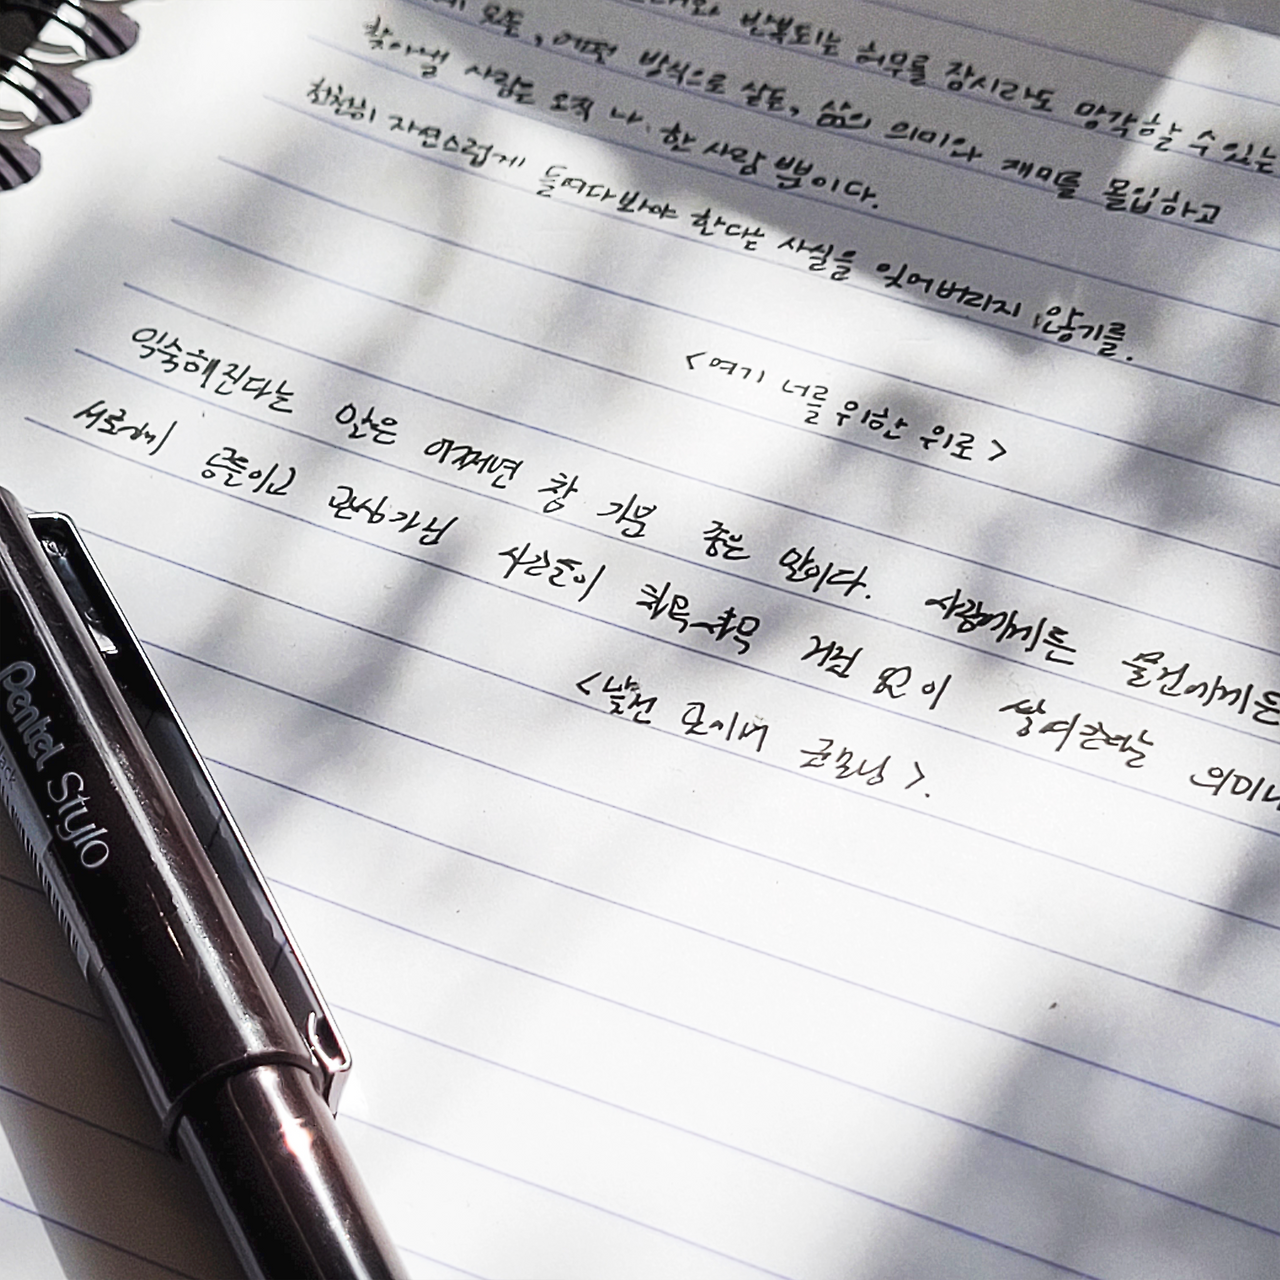 반복되는 허무를 잠시라도 망각할 수 있는
오든, 어떤 방식으로 살든, 삶의 의미와 재미를 몰입하고
찾아낼 사람은 오직 나 한 사람 뿐이다.
천천히 자연스럽게 들여다봐야 한다는 사실을 잊어버리지 않기를.
<여기 너를 위한 위로>
익숙해진다는 말은 어쩌면 참 기분 좋은 말이다. 사람에게든 물건에게든
서로에게 공들이고 관심가닌 시간들이 차곡-차곡 거침 없이 쌓여간다는 의미니
모시며 >.
Pentel Stylo